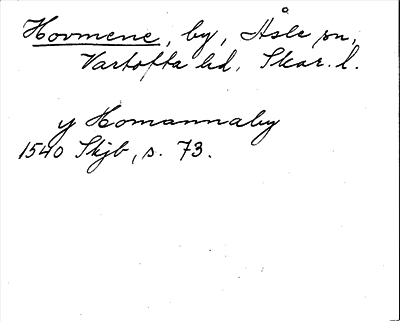 Hovmene, by, Åsle sn,
Vartofta hd, Skar. l.
y Homannaby
1540 Skjb, s. 73.